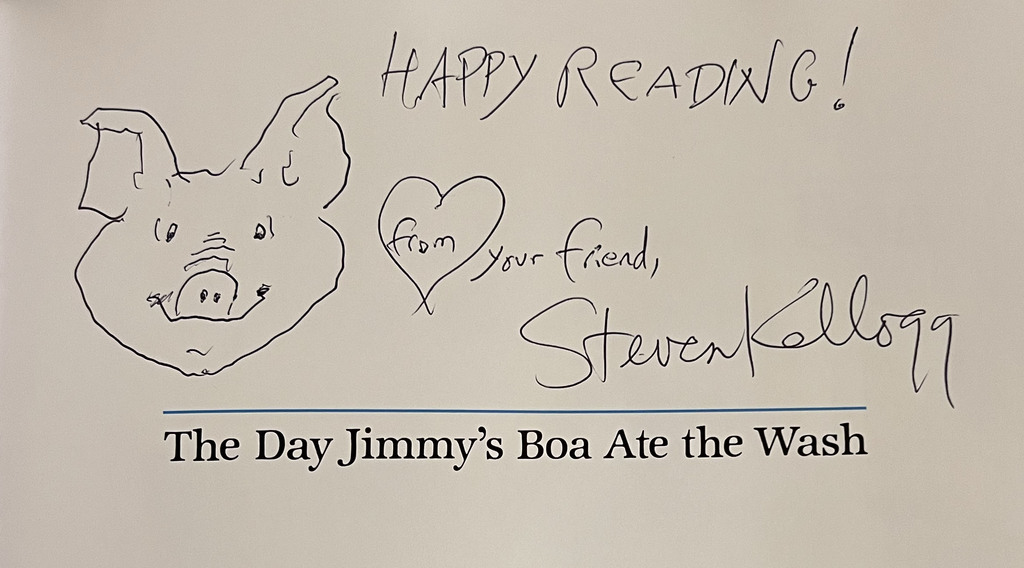 HAPPY READING!
from your friend,
Steven Kellogg
The Day Jimmy's Boa Ate the Wash